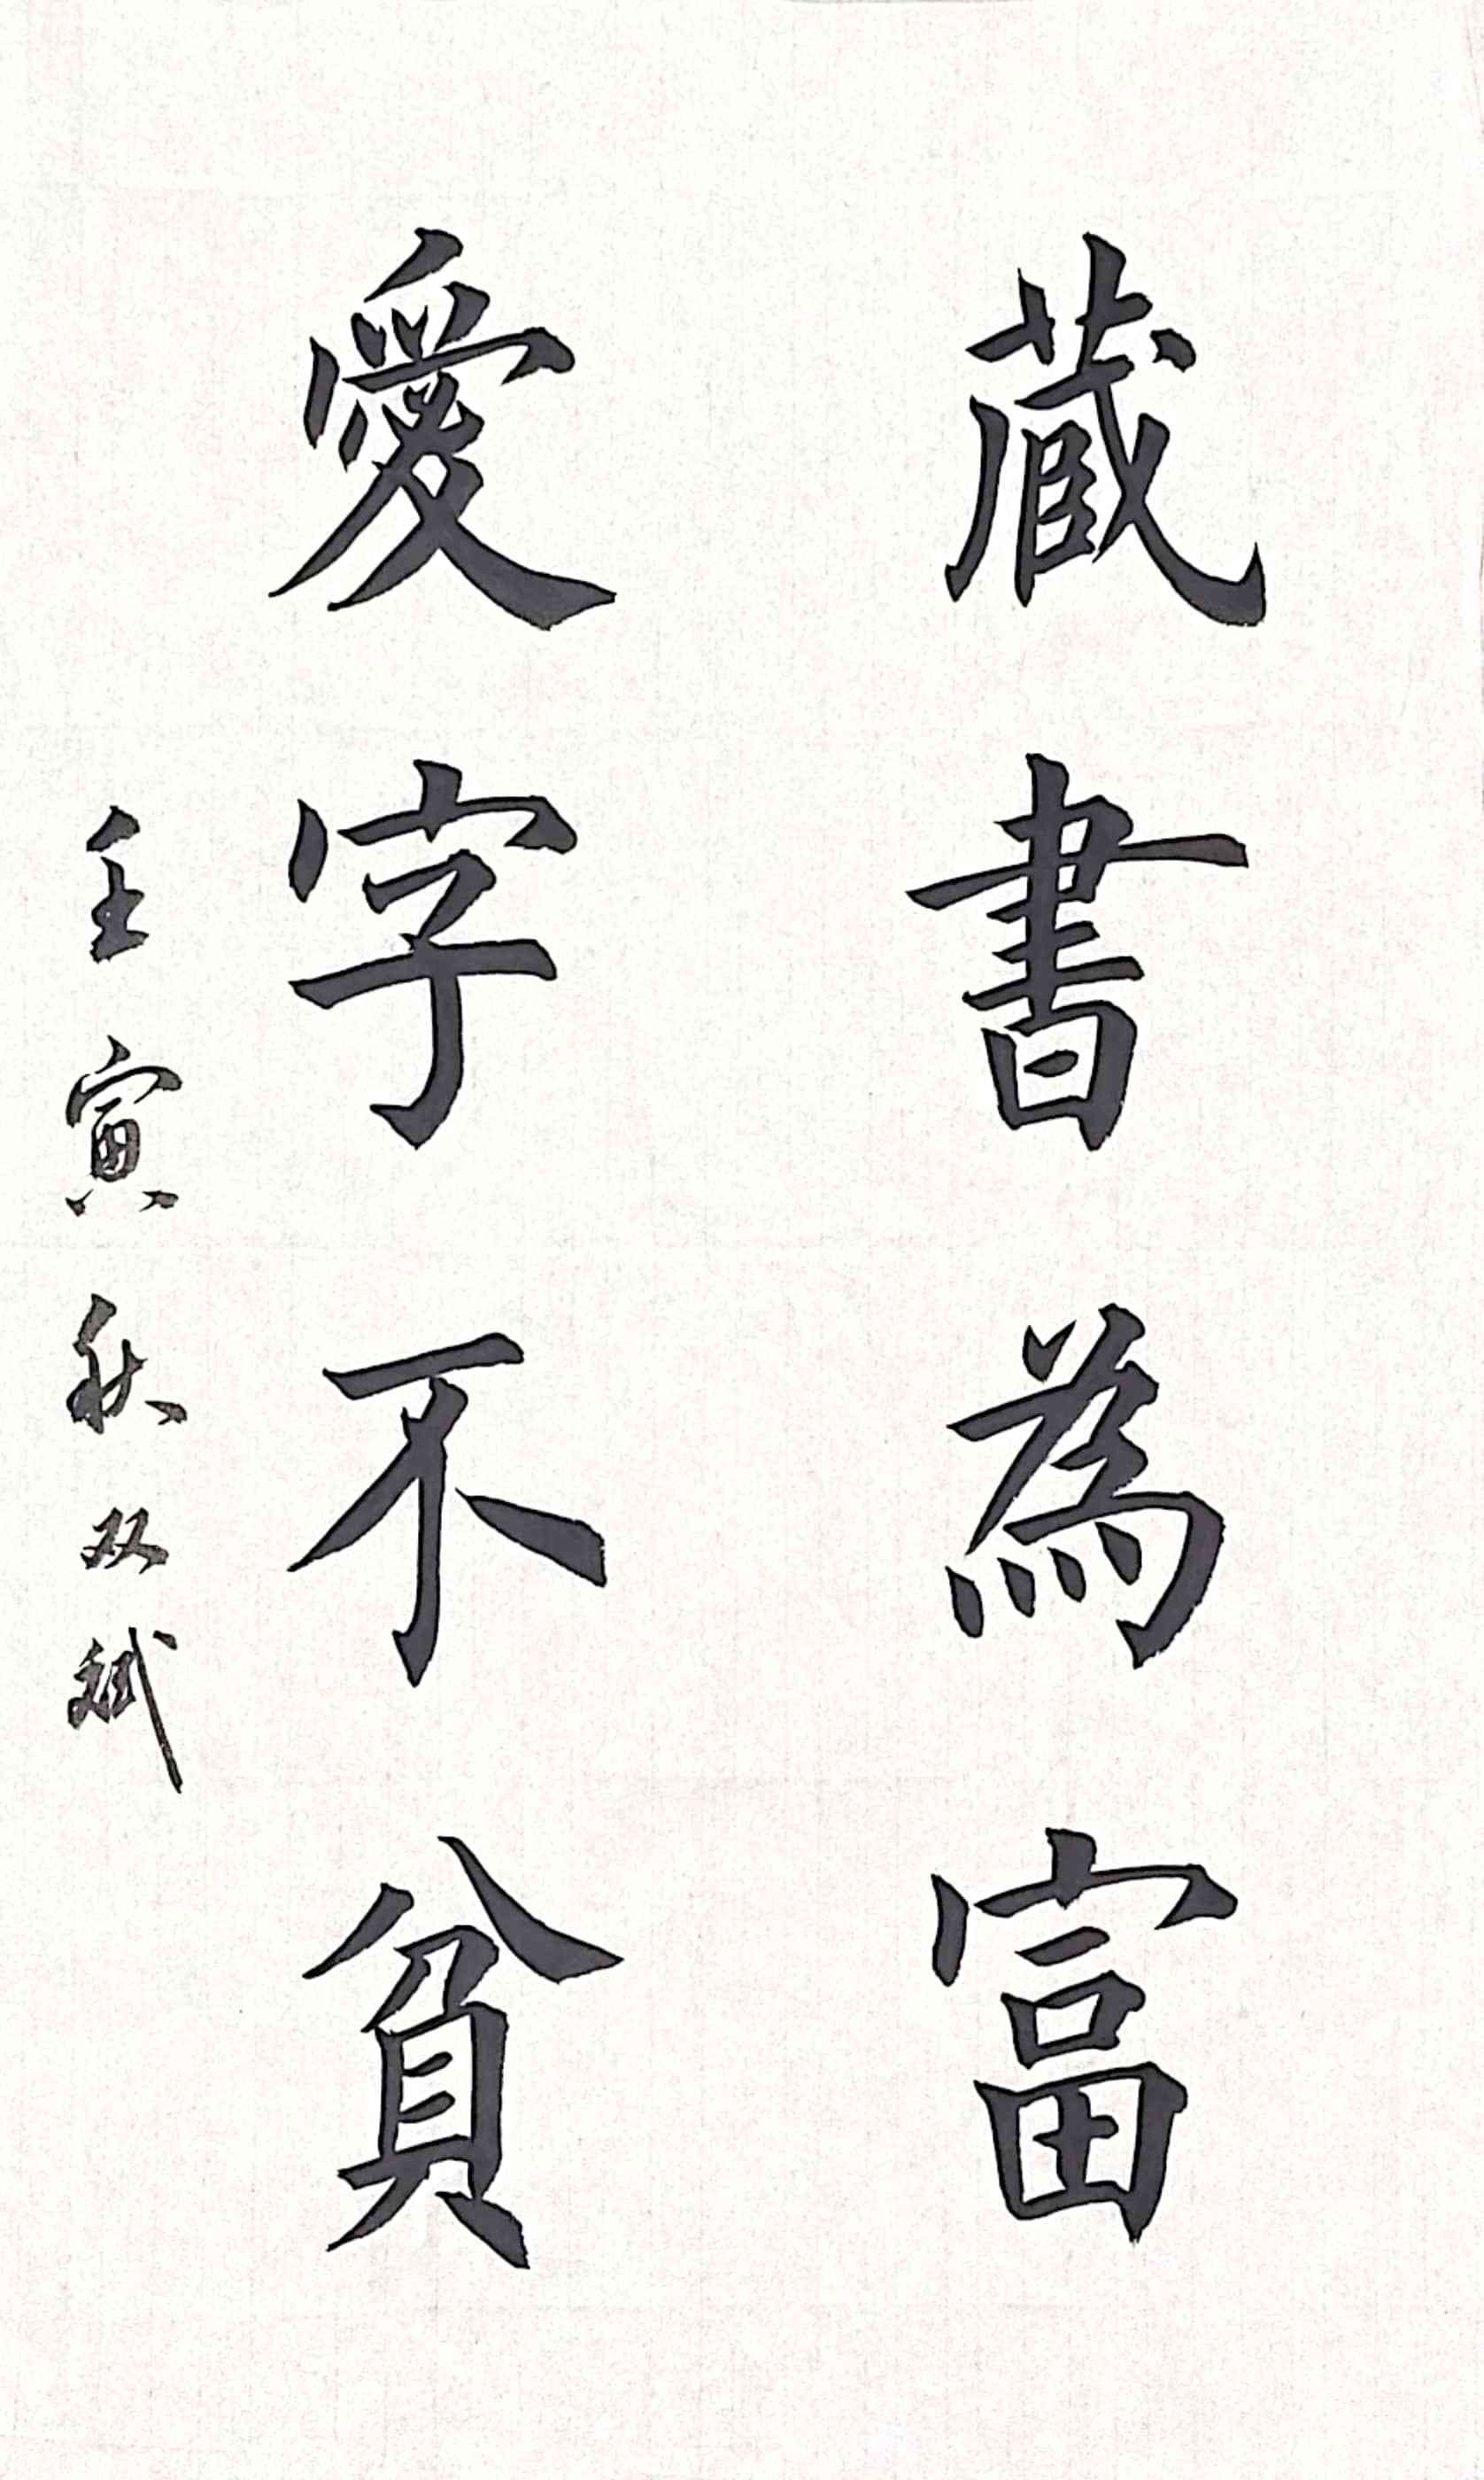 藏書為富
愛字不貧
壬寅秋双斌